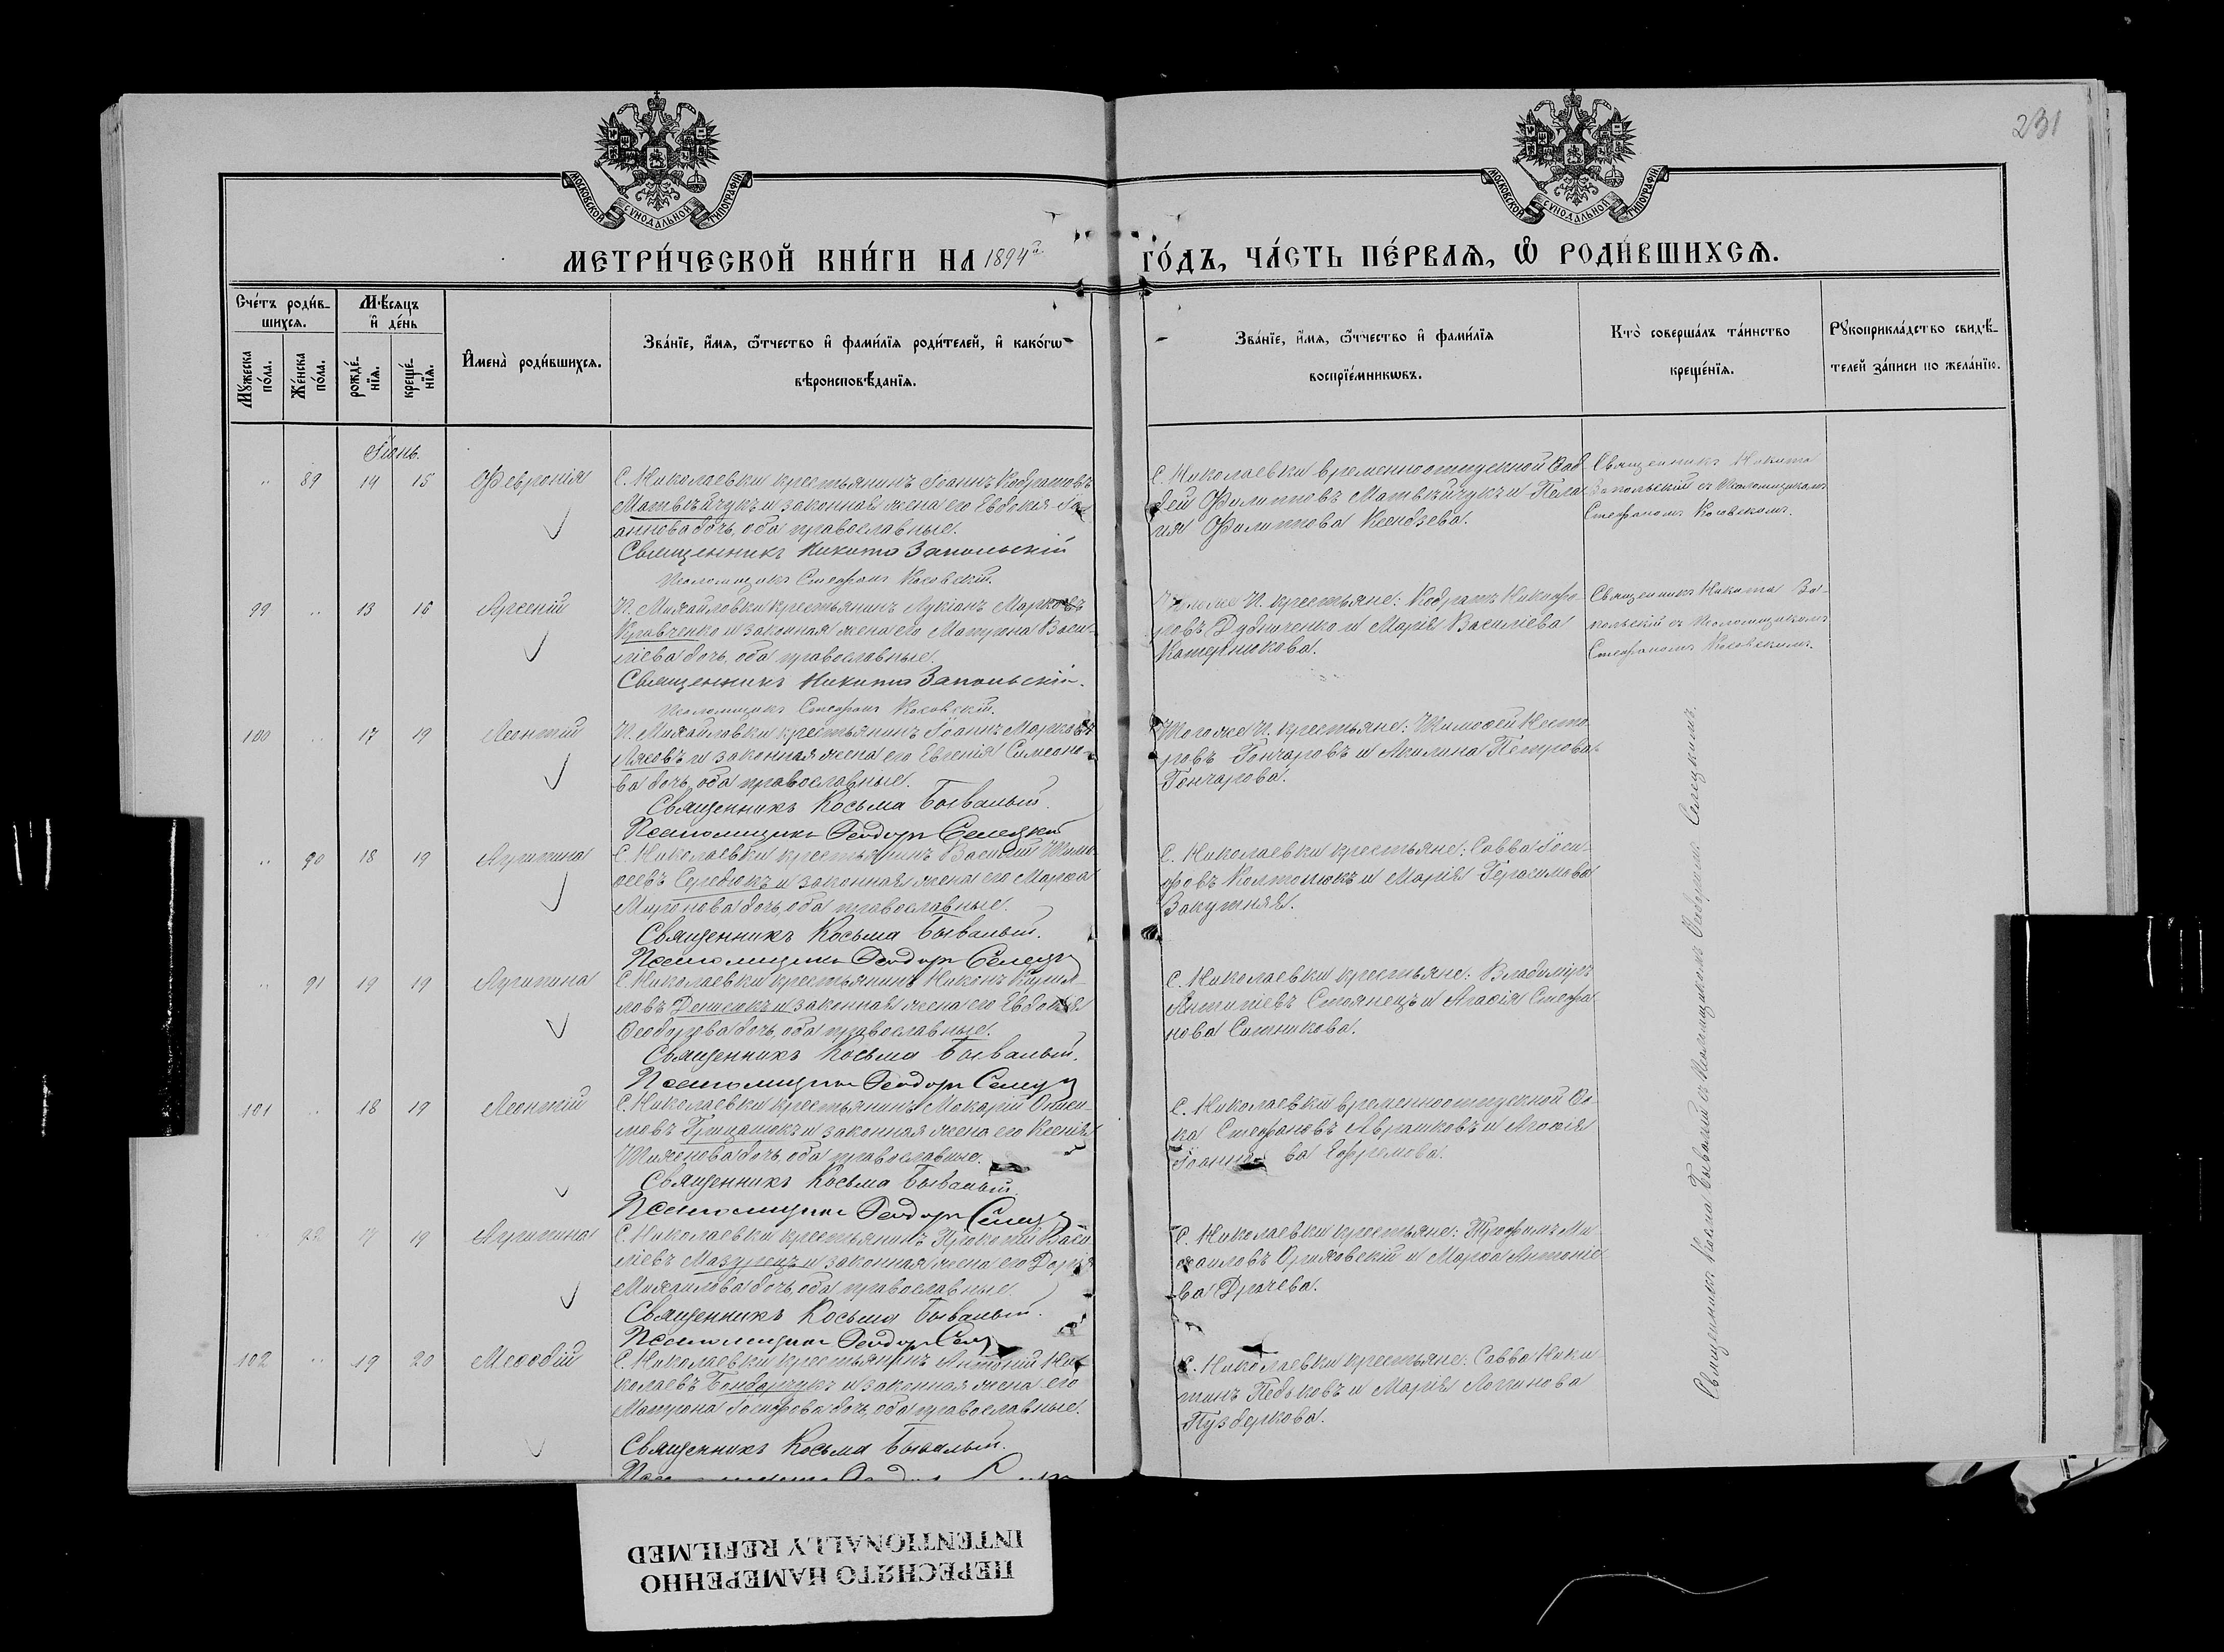 231
МОСКОВСКОЙ СУНОДАЛЬНОЙ ТИПОГРАФІИ
МОСКОВСКОЙ СУНОДАЛЬНОЙ ТИПОГРАФІИ
МЕТРИ́ЧЕСКОЙ КНИ́ГИ НА 1894й ГО́ДЪ, ЧА́СТЬ ПЕ́РВАѦ, Ѽ РОДИ́ВШИХСѦ.
Сче́тъ роди́в-
шихсѧ.
Мѣ́сѧцъ
и҆ де́нь
Мꙋ́жеска по́ла.
Же́нска по́ла.
рожде́-нїѧ.
креще́-нїѧ.
И҆мена̀ роди́вшихсѧ.
Зва́нїе, и҆́мѧ, ѻ҆́тчество и҆ фами́лїѧ роди́телей, и҆ како́гѡ
вѣроисповѣ́данїѧ.
Зва́нїе, и҆́мѧ, ѻ҆́тчество и҆ фами́лїѧ
воспрїе́мникѡвъ.
Кто̀ соверша́лъ та́инство
креще́нїѧ.
Рꙋкоприкла́дство свидѣ́-
телей за́писи по жела́нїю.
Іюнь.
" 89 14 15 Февронія
С. Николаевки крестьянинъ Іоаннъ Кодратовъ
Матвѣйчукъ и законная жена его Евдокія Іо
аннова дочь, оба православные.
Священникъ Никита Запольскій
Псаломщикъ Стефанъ Косовскій.
С. Николаевки временноотпускной Фад
дей Филипповъ Матвѣйчукъ и Пела
гія Филиппова Ксендзева.
Священникъ Никита
Запольскій съ Псаломщикомъ
Стефаномъ Косовскимъ.
99 " 13 16 Арсеній
П. Михайловки крестьянинъ Лукіанъ Марковъ
Кравченко и законная жена его Матрона Васи-
ліева дочь, оба православные.
Священникъ Никита Запольскій.
Псаломщикъ Стефанъ Косовскій.
Того же П. крестьяне: Кодратъ Никифо-
ровъ Дудниченко и Марія Василіева
Катернюкова.
Священникъ Никита За-
польскій съ Псаломщикомъ
Стефаномъ Косовскимъ.
100 " 17 19 Леонтій
П. Михайловки крестьянинъ Іоаннъ Марковъ
Лясовъ и законная жена его Евгенія Симеоно-
ва дочь, оба православные.
Священникъ Косьма Бывалый.
Псаломщикъ Ѳеодоръ Селецкій
Того же П. крестьяне: Тимоѳей Несто
ровъ Гончаровъ и Акилина Петрова
Гончарова.
" 90 18 19 Агрипина
С. Николаевки крестьянинъ Василій Тимо-
ѳеевъ Середюкъ и законная жена его Марѳа
Миронова дочь, оба православные.
Священникъ Косьма Бывалый.
Псаломщикъ Ѳеодоръ Селецк
С. Николаевки крестьяне: Савва Іоси-
фовъ Колтонюкъ и Марія Герасимова
Закутняя.
" 91 19 19 Агрипина
С. Николаевки крестьянинъ Никонъ Кирил-
ловъ Денисюкъ и законная жена его Евдокія
Ѳеодорова дочь, оба православные.
Священникъ Косьма Бывалый.
Псаломщикъ Ѳеодоръ Селец
С. Николаевки крестьяне: Владиміръ
Антипіевъ Стоянецъ и Агаѳія Стефа
нова Ситникова.
101 " 18 19 Леонтій
С. Николаевки крестьянинъ Макарій Ониси-
мовъ Грицанюкъ и законная жена его Ксенія
Тихонова дочь, оба православные.
Священникъ Косьма Бывалый.
Псаломщикъ Ѳеодоръ Селец
С. Николаевки временноотпускной Ѳо-
ка Стефановъ Аврамковъ и Агаѳія
Іоанно ва Ефремова.
" 92 17 19 Агрипина
С. Николаевки крестьянинъ Прокопій Васи
ліевъ Мазурецъ и законная жена его Дарія
Михаилова дочь, оба православные.
Священникъ Косьма Бывалый.
Псаломщикъ Ѳеодоръ Сел
С. Николаевки крестьяне: Трофимъ Ми-
хаиловъ Ориховскій и Марѳа Антоніе
ва Драчева.
102 " 19 20 Меѳодій
С. Николаевки крестьянинъ Антоній Ни
колаевъ Бондарчукъ и законная жена его
Матрона Іосифова дочь, оба православные.
Священникъ Косьма Бывалый.
С. Николаевки крестьяне: Савва Ники-
тинъ Педьковъ и Марія Логинова
Пуздеркова.
Священникъ Косьма Бывалый съ Псаломщикомъ Ѳеодоромъ Селецкимъ.
ПЕРЕСНЯТО НАМЕРЕННО
INTENTIONALLY REFILMED